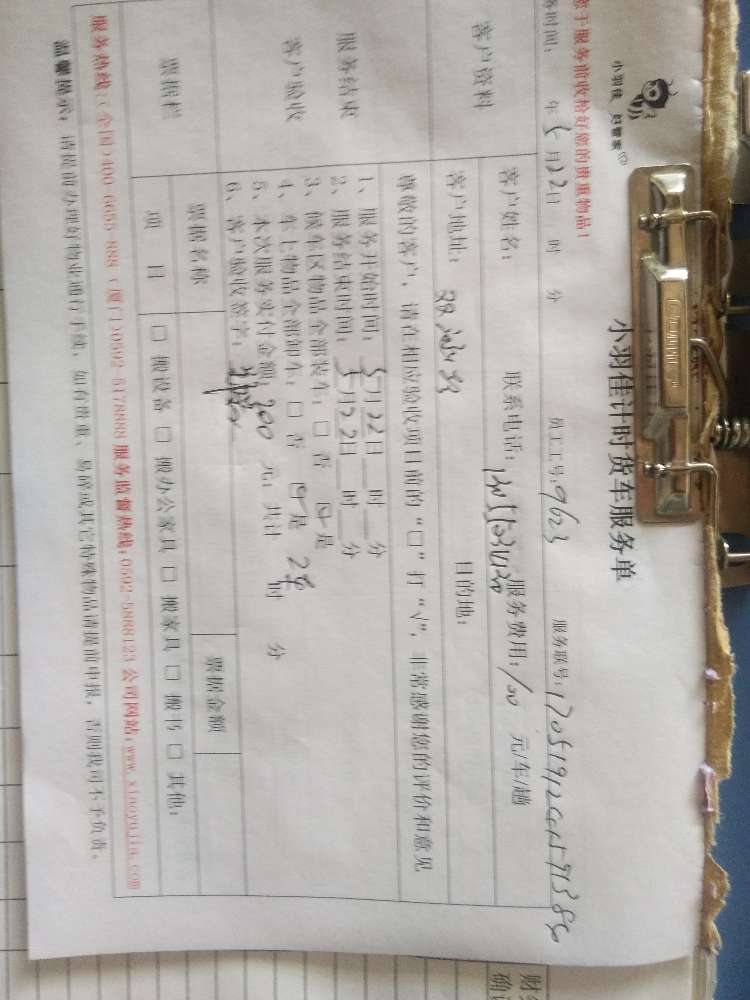 小羽佳 好管家
小羽佳计时货车服务单
于服务前收拾好您的贵重物品!
务时间: 年 5月22日 时 分 员工工号: 9623 服务联号:
客户资料
客户姓名: 联系电话: 服务费用: 100 元/车/趟
客户地址: 目的地:
服务结束
客户验收
尊敬的客户,请在相应验收项目前的“口”打“√”,非常感谢您的评价和意见
1、服务开始时间: 5月22日 时 分
2、服务结束时间: 5月22日 时 分
3、候车区物品全部装车: □ 否 □ 是
4、车上物品全部卸车: □ 否 □ 是
5、本次服务实付金额: 200 元; 共计 2车 时 分
6、客户验收签字:
票据栏
票据名称 票据金额
项 目 □ 搬设备 □ 搬办公家具 □ 搬家具 □ 搬书 □ 其他:
服务热线:(全国)400-6655-888 (厦门)0592-5178888 服务监督热线:0592-5888123 公司网站:www.xiaoyujia.com
温馨提示: 请提前办理好物业通行手续,如有贵重、易碎或其它特殊物品请提前申报,否则我司不予负责。
财
确